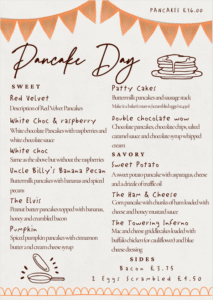 PANCAKES £16.00
Pancake Day
SWEET
Red Velvet
Description of Red Velvet Pancakes
White Choc & raspberry
White chocolate Pancakes with raspberries and
white chocolate sauce
White choc
Same as the above but without the raspberries
Uncle Billy's Banana Pecan
Buttermilk pancakes with bananas and spiced
pecans
The Elvis
Peanut butter pancakes topped with banana,
honey and crumbled bacon
Pumpkin
Spiced pumpkin pancakes with cinnamon
butter and cream cheese syrup
Patty Cakes
Buttermilk pancakes and sausage stack
Double chocolate wow
Chocolate pancakes, chocolate chips, salted
caramel sauce and chocolate syrup whipped
cream
SAVORY
Sweet Potato
A sweet potato pancake with asparagus, cheese
and a drizzle of truffle oil
The Ham & Cheese
Corn pancake with chunks of ham loaded with
cheese and honey mustard sauce
The Towering Inferno
Mac and cheese griddlecakes loaded with
buffalo chicken for cauliflower and blue
cheese dressing
SIDES
Bacon £3.75
2 Eggs Scrambled £4.50